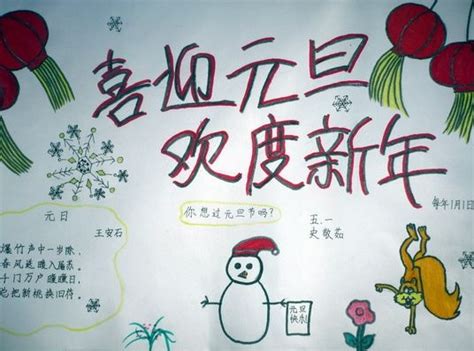 喜迎元旦
欢度新年
每年1月1日
元日
王安石
爆竹声中一岁除，
春风送暖入屠苏。
千门万户曈曈日，
总把新桃换旧符。
你想过元旦节吗？
五.一
史敬茹
元旦
快乐！